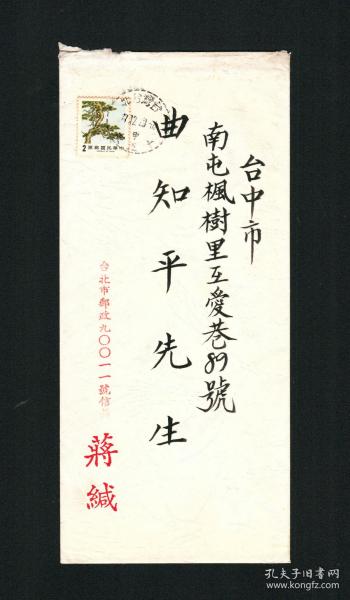 台中市
南屯楓樹里互愛巷89號
曲知平先生
台北市郵政九〇〇一一號信
蔣緘
2 票郵國民華中
孔夫子旧书网
kongfz.com